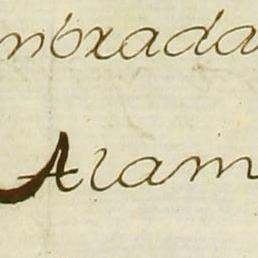 mbrada
Alam